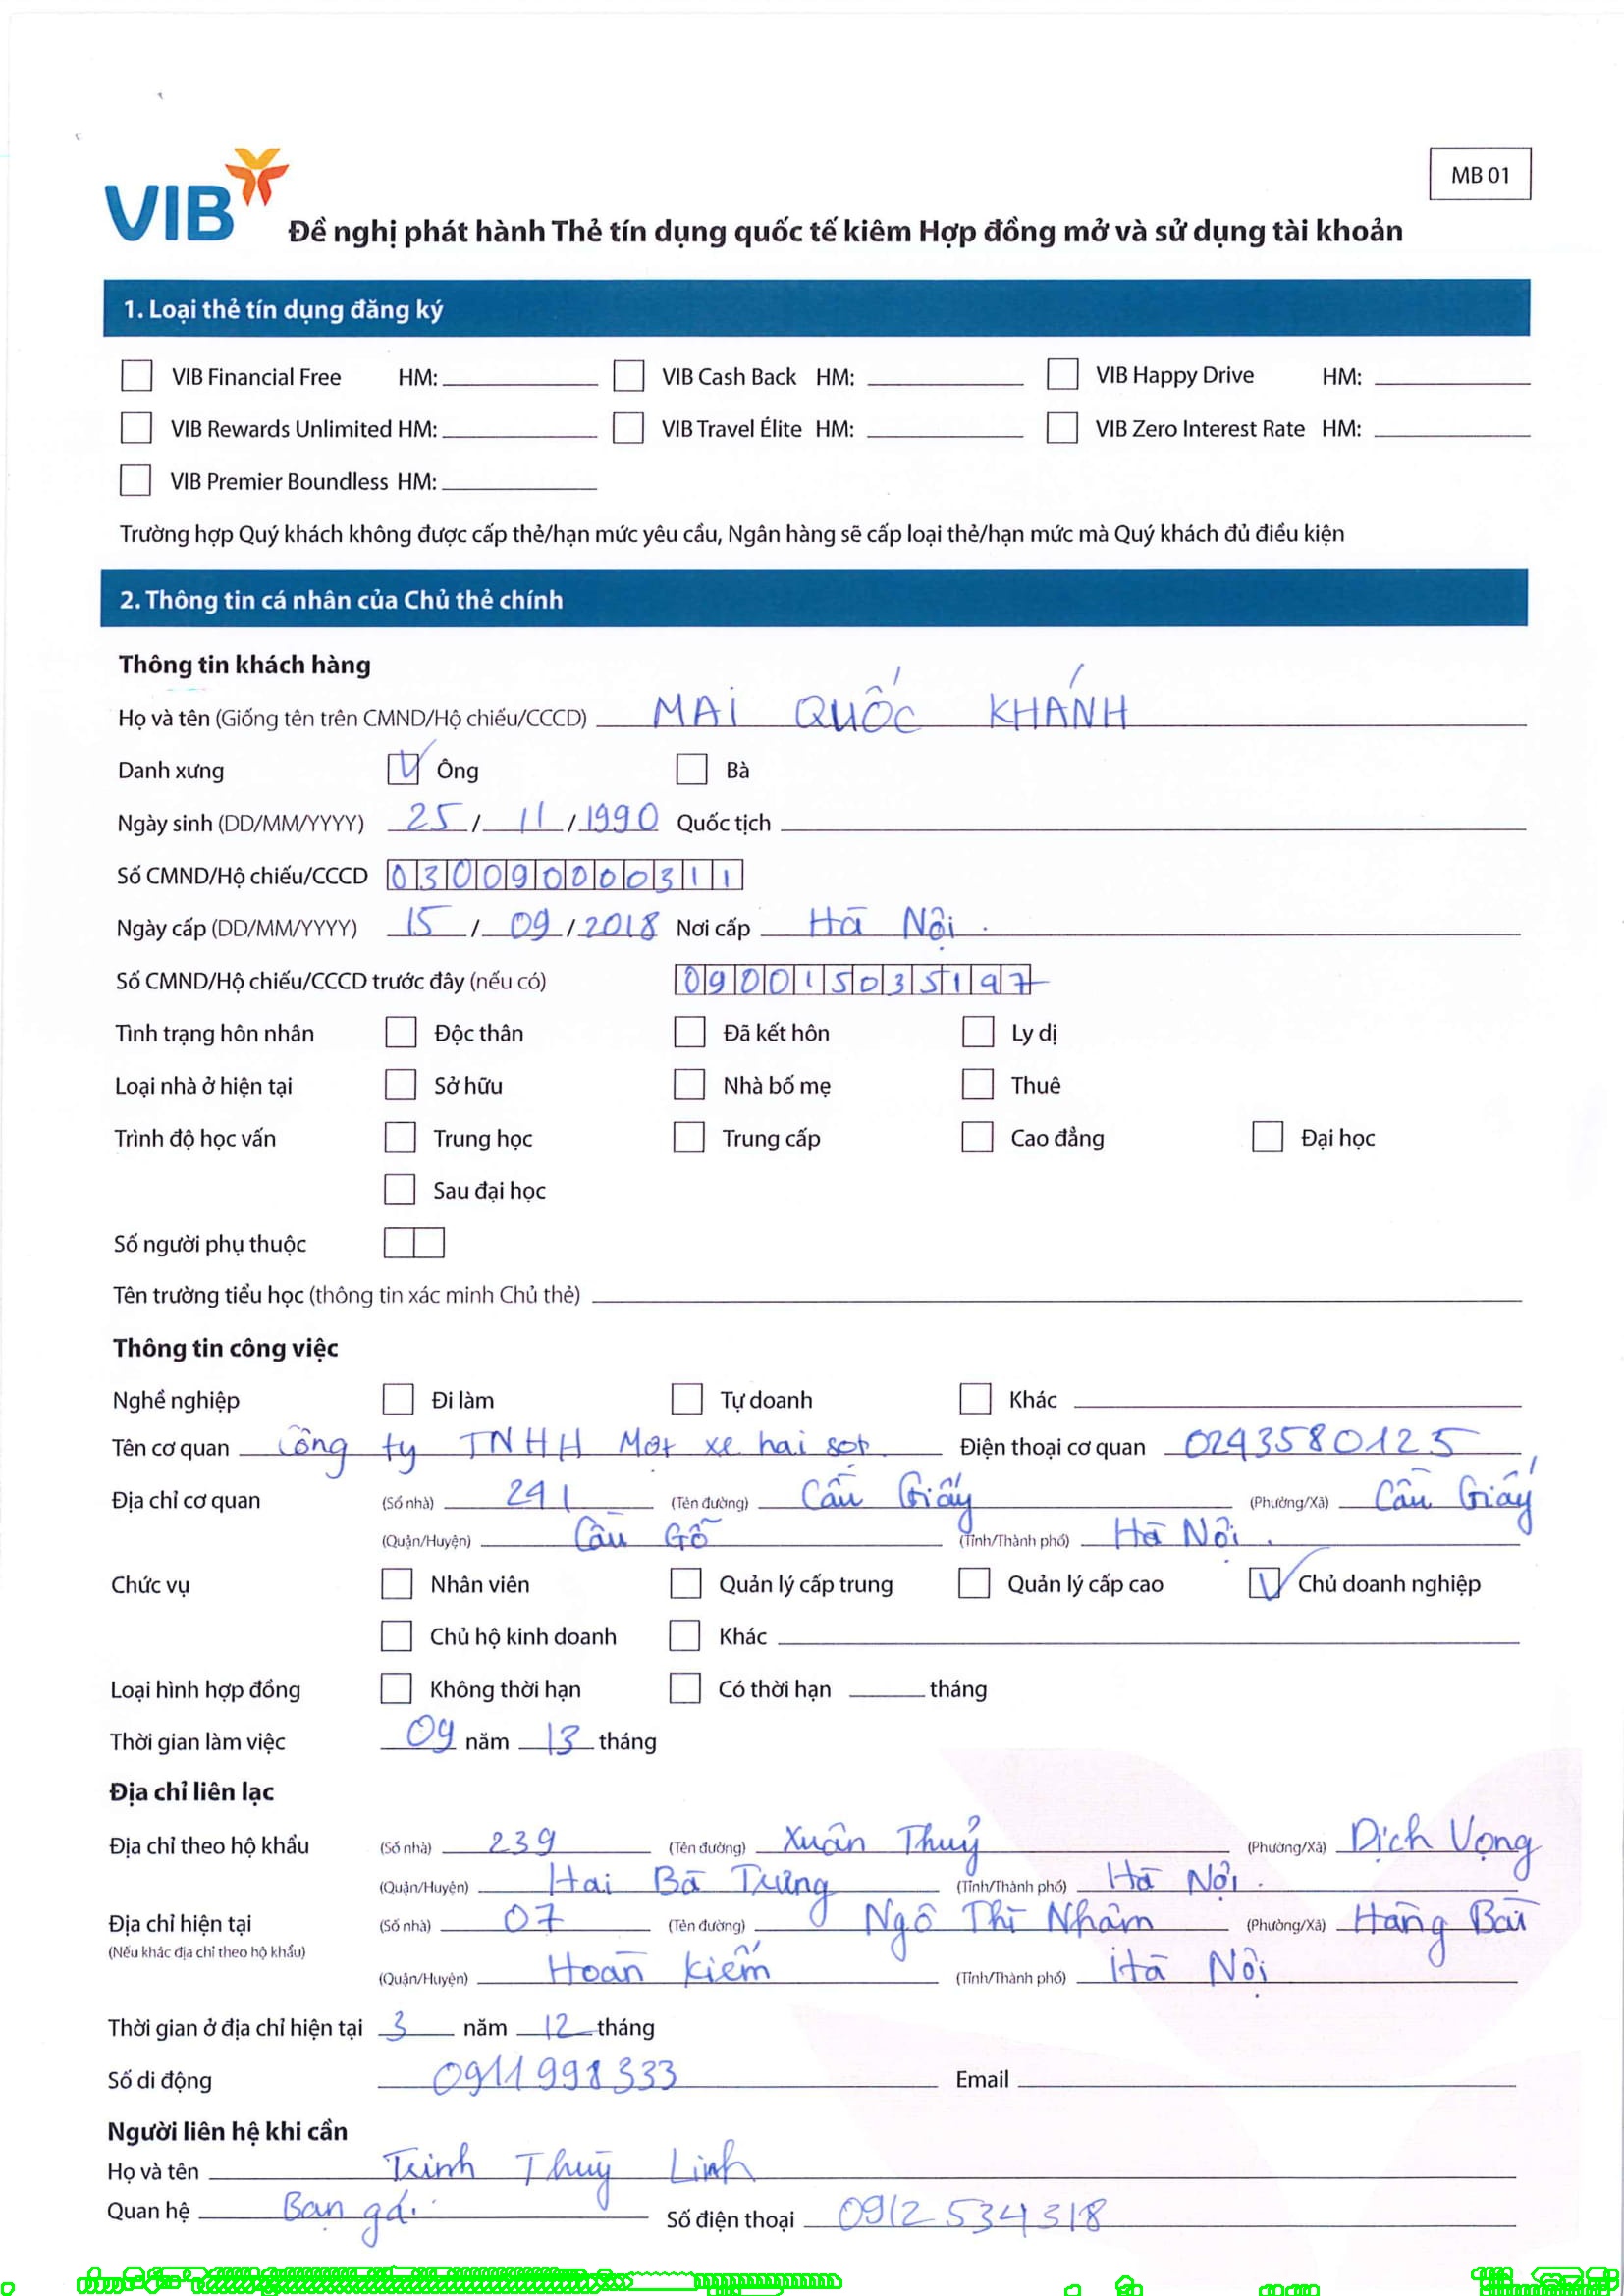 VIB
MB 01
Đề nghị phát hành Thẻ tín dụng quốc tế kiêm Hợp đồng mở và sử dụng tài khoản
1. Loại thẻ tín dụng đăng ký
VIB Financial Free HM: VIB Cash Back HM: VIB Happy Drive HM:
VIB Rewards Unlimited HM: VIB Travel Élite HM: VIB Zero Interest Rate HM:
VIB Premier Boundless HM:
Trường hợp Quý khách không được cấp thẻ/hạn mức yêu cầu, Ngân hàng sẽ cấp loại thẻ/hạn mức mà Quý khách đủ điều kiện
2. Thông tin cá nhân của Chủ thẻ chính
Thông tin khách hàng
Họ và tên (Giống tên trên CMND/Hộ chiếu/CCCD) MAI QUỐC KHÁNH
Danh xưng Ông Bà
Ngày sinh (DD/MM/YYYY) 25 / 11 / 1990 Quốc tịch
Số CMND/Hộ chiếu/CCCD 030090000311
Ngày cấp (DD/MM/YYYY) 15 / 09 / 2018 Nơi cấp Hà Nội.
Số CMND/Hộ chiếu/CCCD trước đây (nếu có) 090015035197
Tình trạng hôn nhân Độc thân Đã kết hôn Ly dị
Loại nhà ở hiện tại Sở hữu Nhà bố mẹ Thuê
Trình độ học vấn Trung học Trung cấp Cao đẳng Đại học
Sau đại học
Số người phụ thuộc
Tên trường tiểu học (thông tin xác minh Chủ thẻ)
Thông tin công việc
Nghề nghiệp Đi làm Tự doanh Khác
Tên cơ quan Công ty TNHH Một xe hai sọt Điện thoại cơ quan 0243580125
Địa chỉ cơ quan (Số nhà) 241 (Tên đường) Cầu Giấy (Phường/Xã) Cầu Giấy
(Quận/Huyện) Cầu Gỗ (Tỉnh/Thành phố) Hà Nội.
Chức vụ Nhân viên Quản lý cấp trung Quản lý cấp cao Chủ doanh nghiệp
Chủ hộ kinh doanh Khác
Loại hình hợp đồng Không thời hạn Có thời hạn tháng
Thời gian làm việc 09 năm 13 tháng
Địa chỉ liên lạc
Địa chỉ theo hộ khẩu (Số nhà) 239 (Tên đường) Xuân Thuỷ (Phường/Xã) Dịch Vọng
(Quận/Huyện) Hai Bà Trưng (Tỉnh/Thành phố) Hà Nội.
Địa chỉ hiện tại (Số nhà) 07 (Tên đường) Ngô Thì Nhậm (Phường/Xã) Hàng Bài
(Nếu khác địa chỉ theo hộ khẩu)
(Quận/Huyện) Hoàn Kiếm (Tỉnh/Thành phố) Hà Nội
Thời gian ở địa chỉ hiện tại 3 năm 12 tháng
Số di động 0911998333 Email
Người liên hệ khi cần
Họ và tên Trịnh Thuỳ Linh
Quan hệ Bạn gái Số điện thoại 0912534318